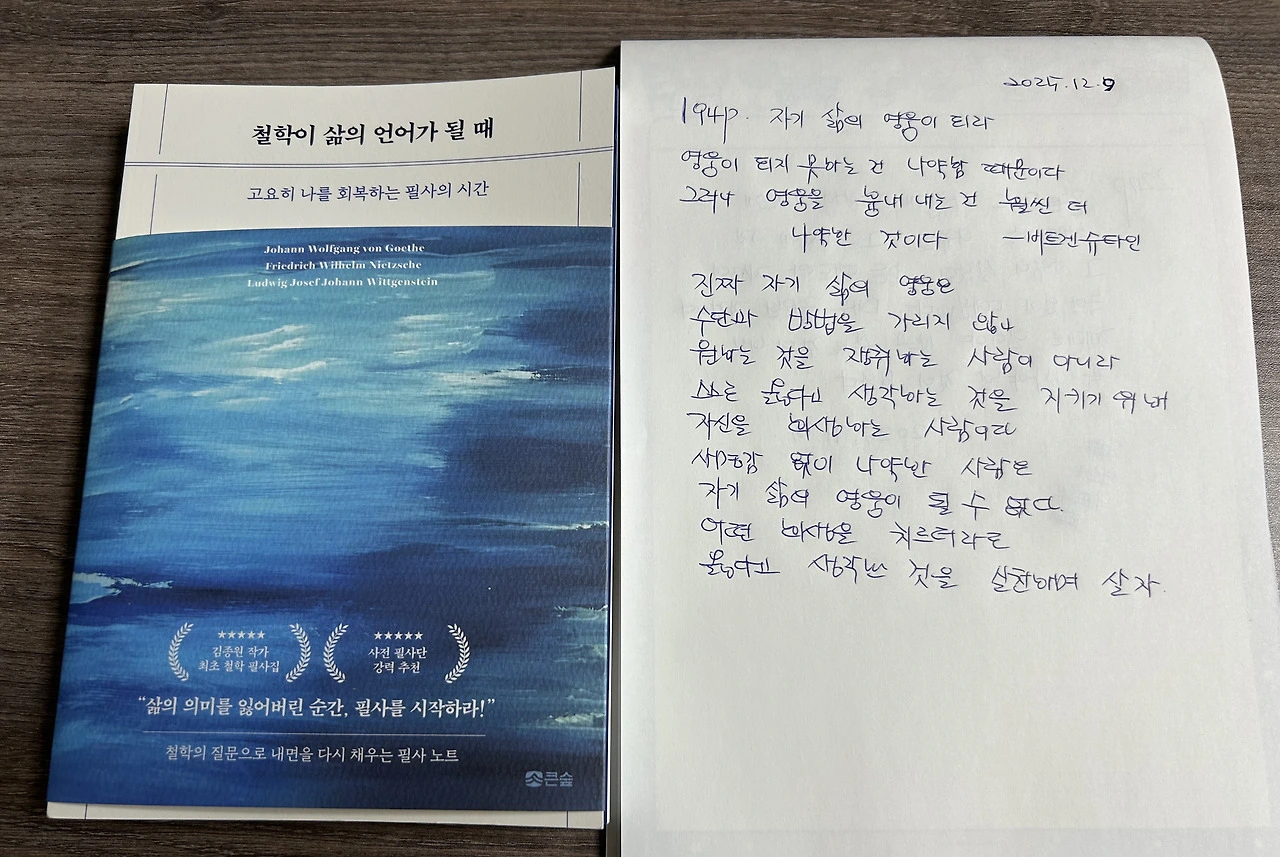 철학이 삶의 언어가 될 때
고요히 나를 회복하는 필사의 시간
Johann Wolfgang von Goethe
Friedrich Wilhelm Nietzsche
Ludwig Josef Johann Wittgenstein
★★★★★
김종원 작가
최초 철학 필사집
★★★★★
사전 필사단
강력 추천
“삶의 의미를 잃어버린 순간, 필사를 시작하라!”
철학의 질문으로 내면을 다시 채우는 필사 노트
큰숲
2025.12.9
자기 삶의 영웅이 되라
영웅이 되지 못하는 건 나약함 때문이다
그러나 영웅을 흉내 내는 건 훨씬 더
나약한 것이다 -비트겐슈타인
진짜 자기 삶의 영웅은
수단과 방법을 가리지 않고
원하는 것을 쟁취하는 사람이 아니라
스스로 옳다고 생각하는 것을 지키기 위해
자신을 희생하는 사람이다
사명감 없이 나약한 사람은
자기 삶의 영웅이 될 수 없다.
어떤 희생을 치르더라도
옳다고 생각한 것을 실천하며 살자.